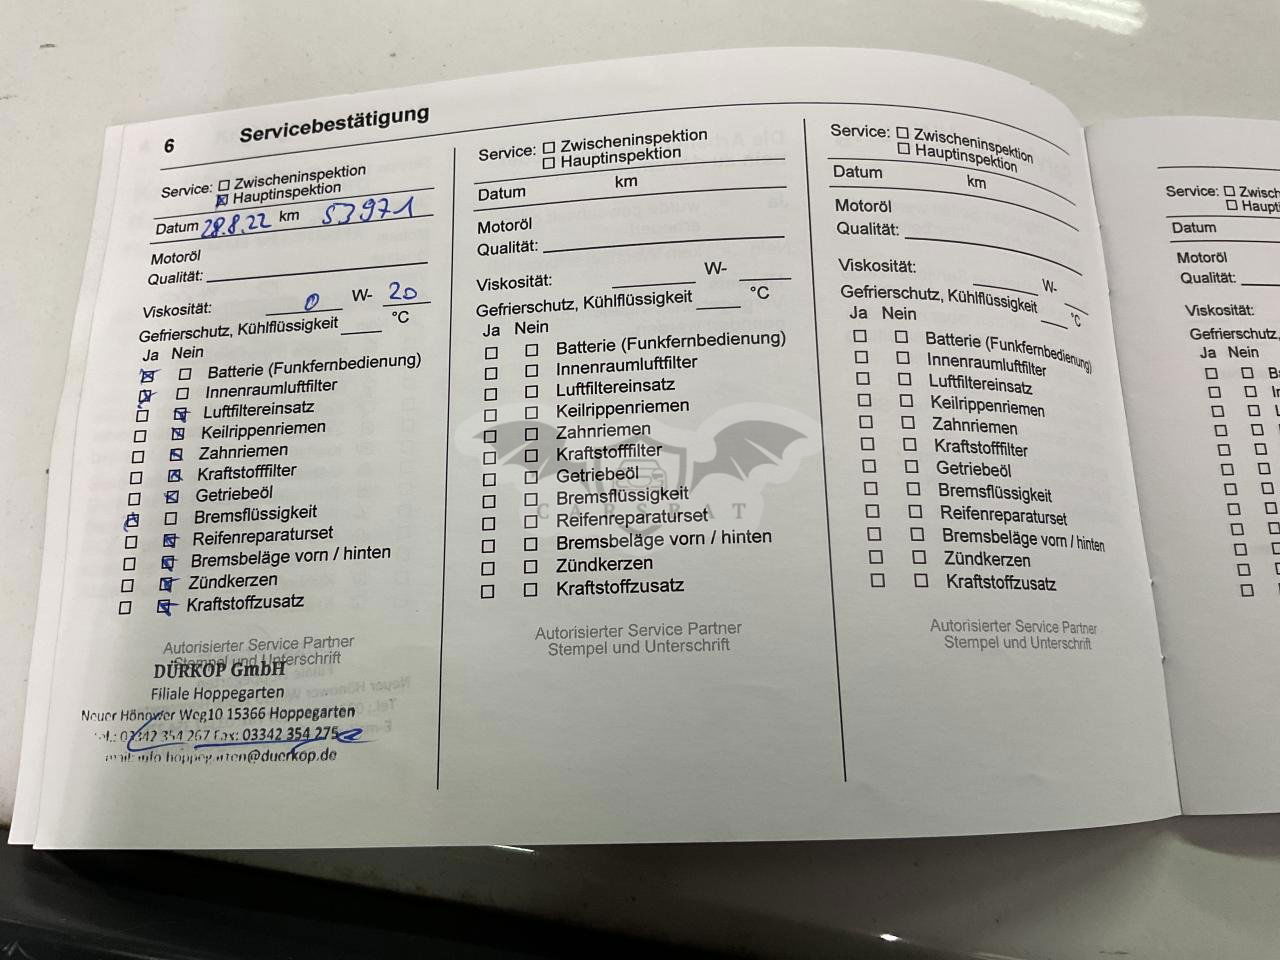 6 Servicebestätigung
Service: ☐ Zwischeninspektion
☒ Hauptinspektion
Datum 28.8.22 km 53971
Motoröl
Qualität:
Viskosität: 0 W- 20
Gefrierschutz, Kühlflüssigkeit °C
Ja Nein
☒ ☐ Batterie (Funkfernbedienung)
☒ ☐ Innenraumluftfilter
☐ ☒ Luftfiltereinsatz
☐ ☒ Keilrippenriemen
☐ ☒ Zahnriemen
☐ ☒ Kraftstofffilter
☐ ☒ Getriebeöl
☒ ☐ Bremsflüssigkeit
☐ ☒ Reifenreparaturset
☐ ☒ Bremsbeläge vorn / hinten
☐ ☒ Zündkerzen
☐ ☒ Kraftstoffzusatz
Autorisierter Service Partner
Stempel und Unterschrift
DÜRKOP GmbH
Filiale Hoppegarten
Neuer Hönower Weg10 15366 Hoppegarten
Tel.: 03342 354 267 Fax: 03342 354 275
mail: info.hoppegarten@duerkop.de
Service: ☐ Zwischeninspektion
☐ Hauptinspektion
Datum km
Motoröl
Qualität:
Viskosität: W-
Gefrierschutz, Kühlflüssigkeit °C
Ja Nein
☐ ☐ Batterie (Funkfernbedienung)
☐ ☐ Innenraumluftfilter
☐ ☐ Luftfiltereinsatz
☐ ☐ Keilrippenriemen
☐ ☐ Zahnriemen
☐ ☐ Kraftstofffilter
☐ ☐ Getriebeöl
☐ ☐ Bremsflüssigkeit
☐ ☐ Reifenreparaturset
☐ ☐ Bremsbeläge vorn / hinten
☐ ☐ Zündkerzen
☐ ☐ Kraftstoffzusatz
Autorisierter Service Partner
Stempel und Unterschrift
CARSBAT
Service: ☐ Zwischeninspektion
☐ Hauptinspektion
Datum km
Motoröl
Qualität:
Viskosität: W-
Gefrierschutz, Kühlflüssigkeit °C
Ja Nein
☐ ☐ Batterie (Funkfernbedienung)
☐ ☐ Innenraumluftfilter
☐ ☐ Luftfiltereinsatz
☐ ☐ Keilrippenriemen
☐ ☐ Zahnriemen
☐ ☐ Kraftstofffilter
☐ ☐ Getriebeöl
☐ ☐ Bremsflüssigkeit
☐ ☐ Reifenreparaturset
☐ ☐ Bremsbeläge vorn / hinten
☐ ☐ Zündkerzen
☐ ☐ Kraftstoffzusatz
Autorisierter Service Partner
Stempel und Unterschrift
Service: ☐ Zwisch
☐ Haupt
Datum
Motoröl
Qualität:
Viskosität:
Gefrierschutz,
Ja Nein